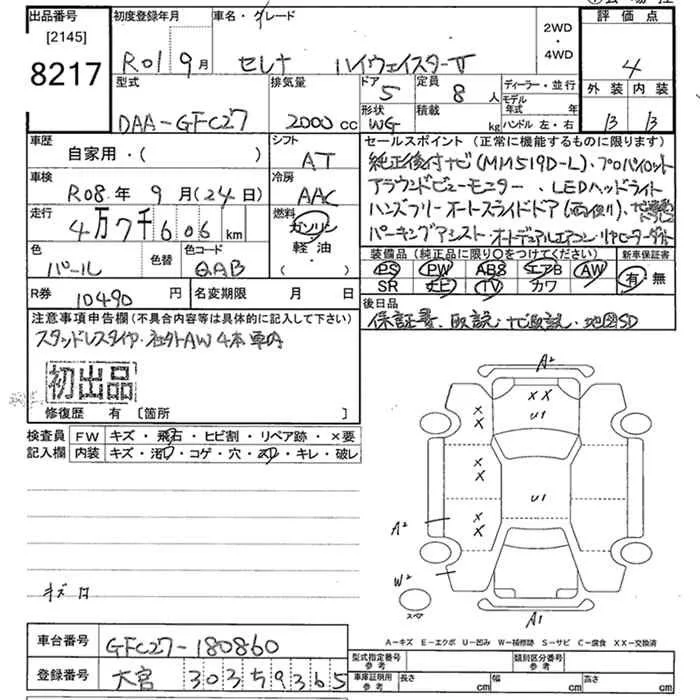 出品番号 初度登録年月 車名・グレード 評価点
[2145] 8217
R01 9月 セレナ ハイウェイスターV 2WD・4WD 4
型式 排気量 ドア 定員 ディーラー・並行 外装 内装
DAA-GFC27 2000cc 5 8人 モデル年式 年 B B
形状 積載 ハンドル 左・右
WG kg
車歴 シフト セールスポイント(正常に機能するものに限ります)
自家用・( ) AT 純正後付ナビ(MM519D-L)、プロパイロット
車検 冷房 アラウンドビューモニター、LEDヘッドライト
R08年9月(24日) AAC ハンズフリーオートスライドドア(両側)、
走行 燃料 パーキングアシスト・オートデュアルエアコン・リヤヒーターダクト
4万7千606km ガソリン・軽油・( )
色 色替 色コード 装備品(純正品に限り○をつけてください) 新車保証書
パール QAB PS PW ABS エアB AW 有・無
SR ナビ TV カワ
R券 10490円 名変期限 月 日 後日品
保証書、取説、ナビ取説、地図SD
注意事項申告欄(不具合内容等は具体的に記入して下さい)
スタッドレスタイヤ・社外AW4本車内
初出品
修復歴 有 [箇所 ]
検査員記入欄 FW キズ・飛石・ヒビ割・リペア跡・×要
内装 キズ・汚れ・コゲ・穴・スレ・キレ・破レ
A2
XX
U1
X
X
X
X
U1
X
X
A2
W2
スペア
A1
キズ
A-キズ E-エクボ U-凹み W-補修跡 S-サビ C-腐食 XX-交換済
車台番号 GFC27-180860
型式指定番号 参考 類別区分番号 参考
登録番号 大宮 303 ち 9365
車庫証明用 参考 長さ cm 幅 cm 高さ cm